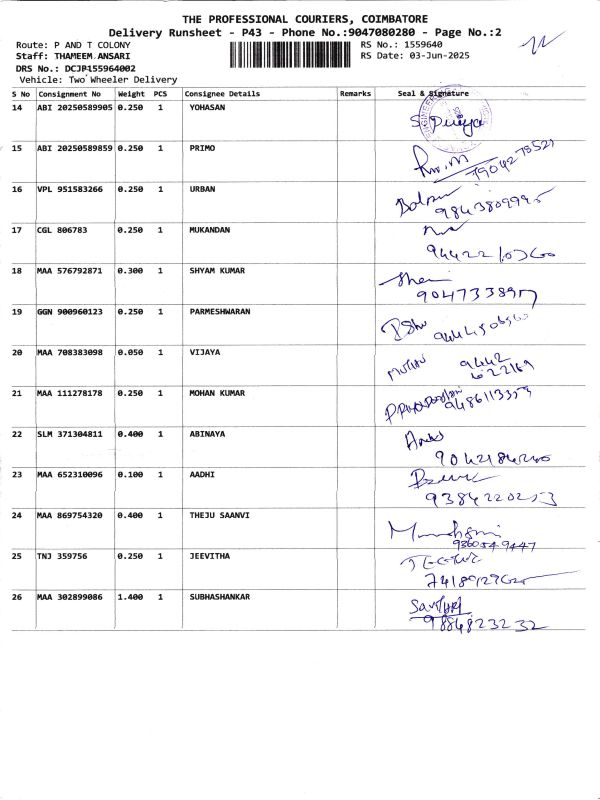 THE PROFESSIONAL COURIERS, COIMBATORE
Delivery Runsheet - P43 - Phone No.:9047080280 - Page No.:2
Route: P AND T COLONY
RS No.: 1559640
Staff: THAMEEM ANSARI
RS Date: 03-Jun-2025
DRS No.: DCJP155964002
Vehicle: Two Wheeler Delivery
S No Consignment No Weight PCS Consignee Details Remarks Seal & Signature
14 ABI 20250589905 0.250 1 YOHASAN
S. Priya
15 ABI 20250589859 0.250 1 PRIMO
7904278521
16 VPL 951583266 0.250 1 URBAN
9843809995
17 CGL 806783 0.250 1 MUKANDAN
18 MAA 576792871 0.300 1 SHYAM KUMAR
9047733897
19 GGN 900960123 0.250 1 PARMESHWARAN
20 MAA 708383098 0.050 1 VIJAYA
9442
622169
21 MAA 111278178 0.250 1 MOHAN KUMAR
9486113353
22 SLM 371304811 0.400 1 ABINAYA
9042184240
23 MAA 652310096 0.100 1 AADHI
9384220253
24 MAA 869754320 0.400 1 THEJU SAANVI
9360549447
25 TNJ 359756 0.250 1 JEEVITHA
26 MAA 302899086 1.400 1 SUBHASHANKAR
9884823232